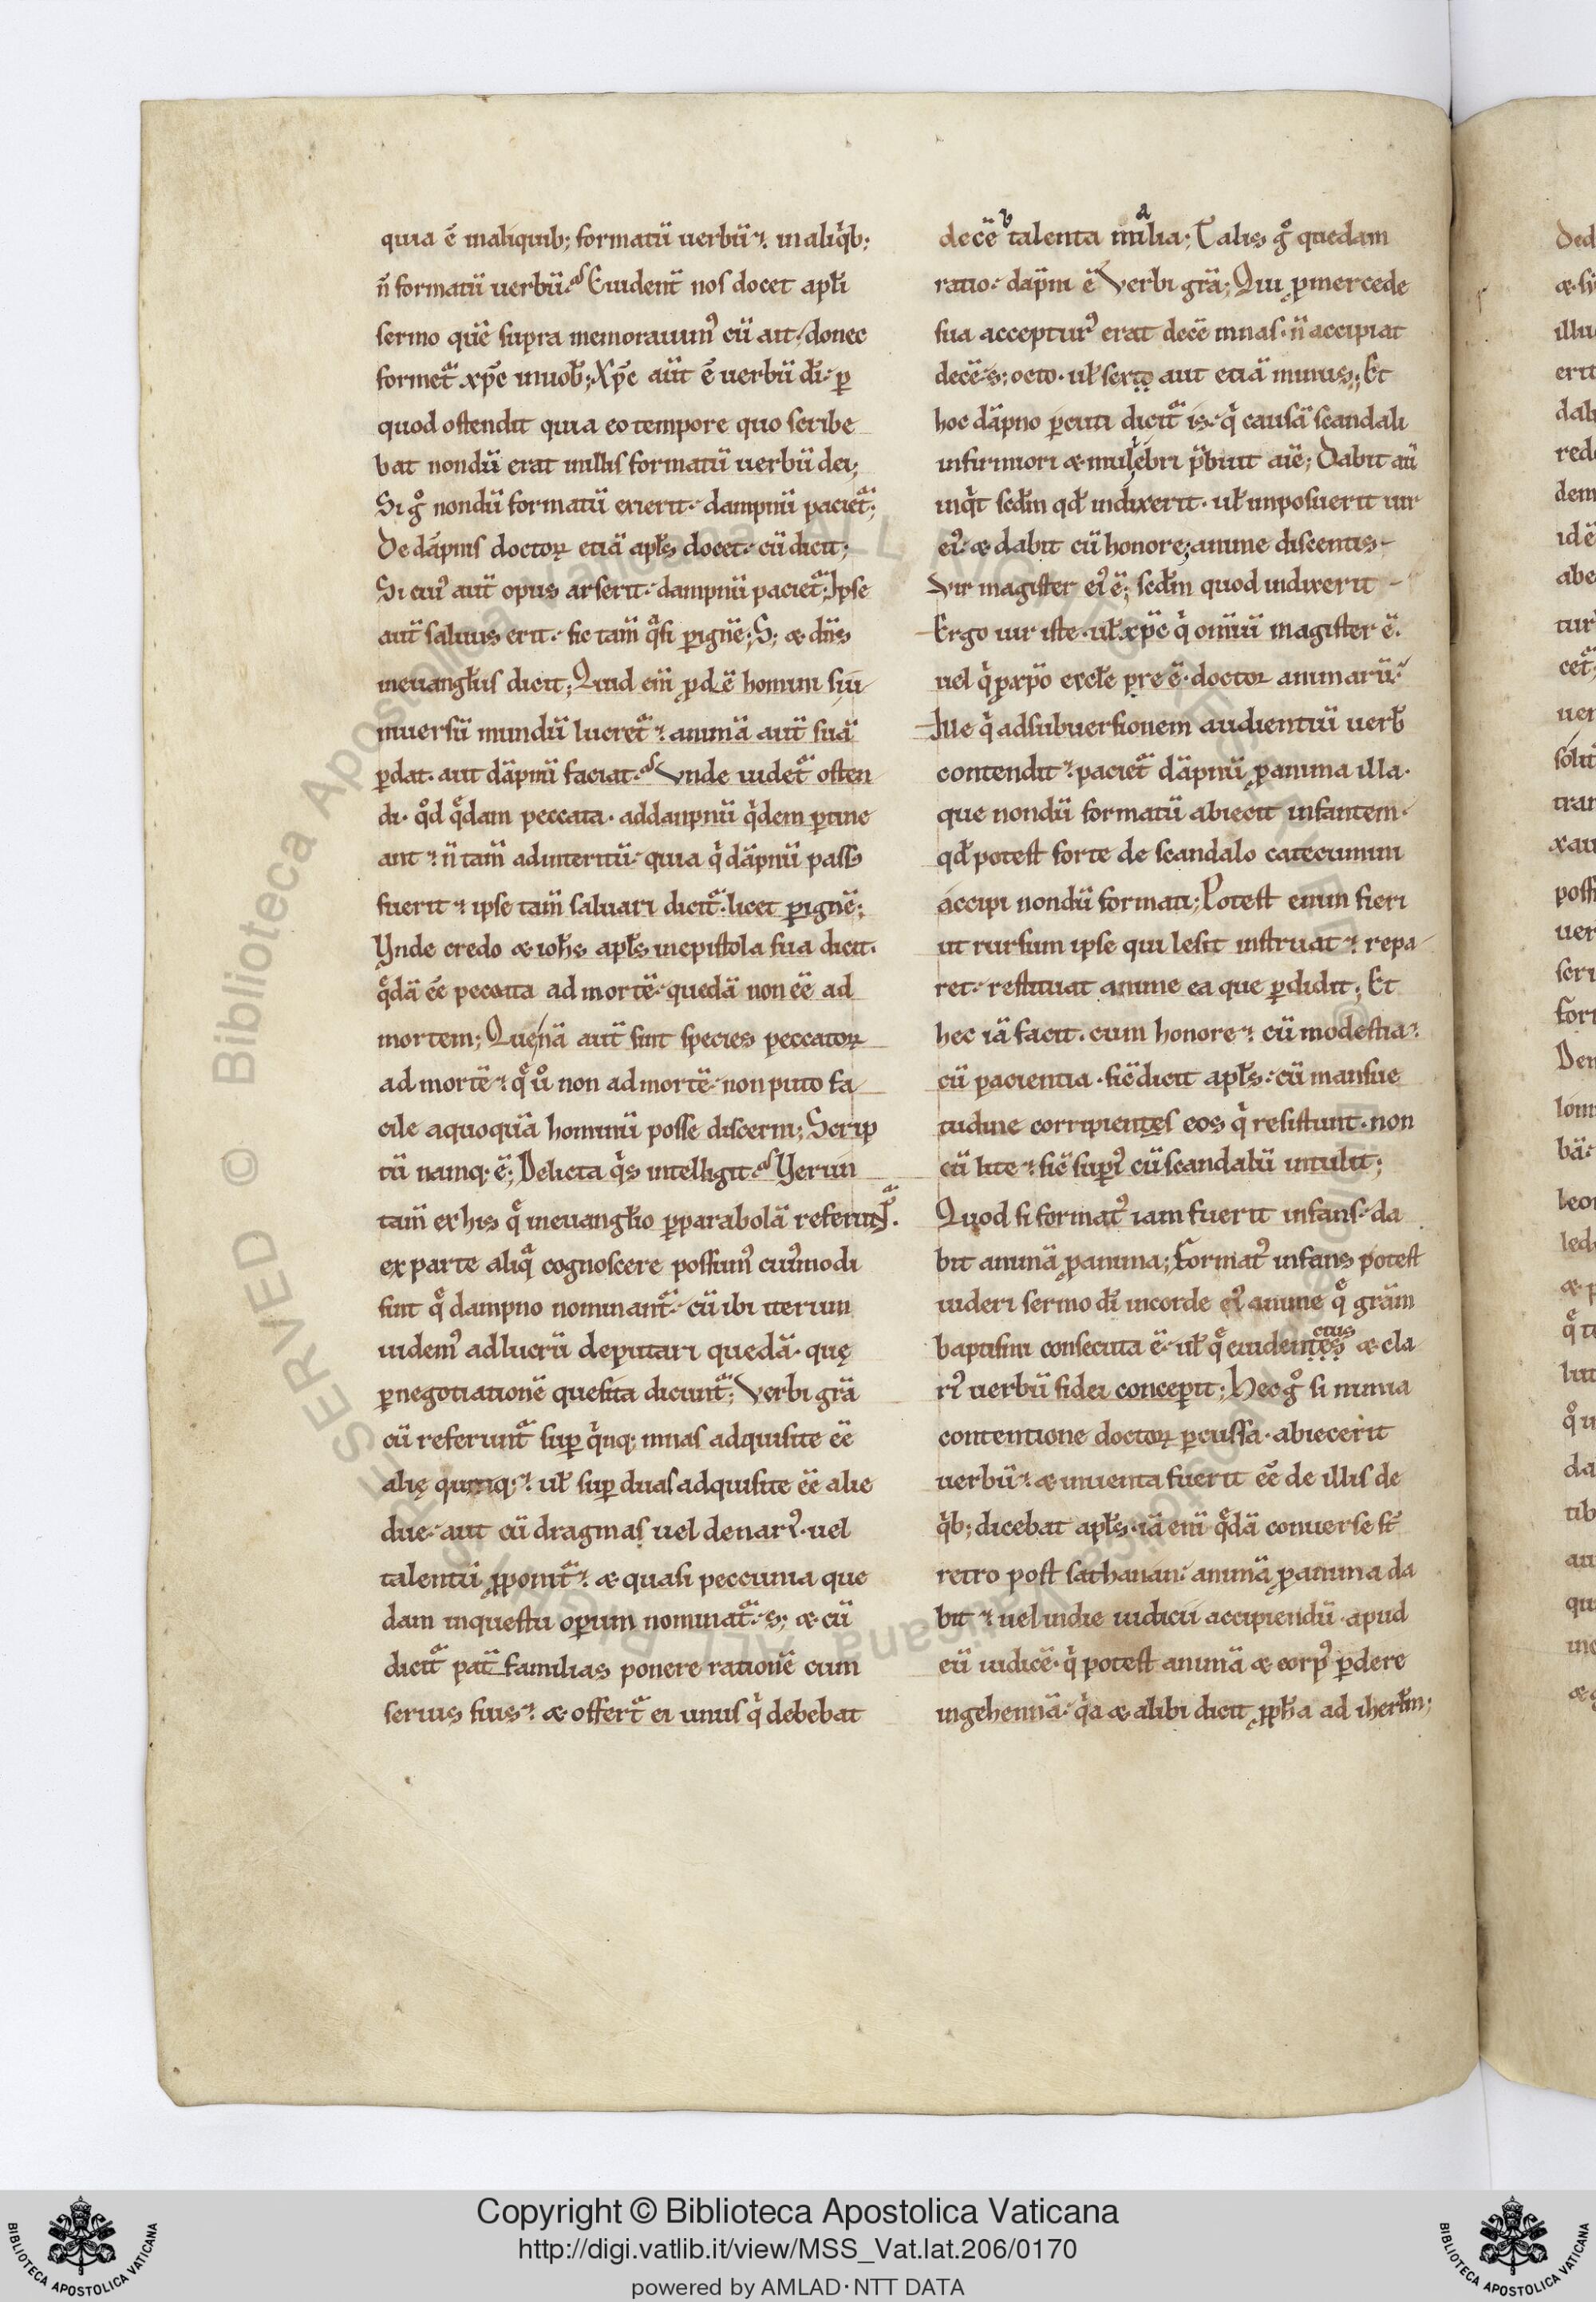 quia ē inaliquib; formatū uerbū ⁊ inaliq̇b;
n̄ formatū uerbū. Euident̄ nos docet apłi
sermo quē supra memorauim᷒ cū ait/ donec
formet᷑ xp̄c inuob̄; Xp̄c aūt ē uerbū dī. ꝑ
quod ostendit quia eo tempore quo scribe
bat nondū erat inillis formatū uerbū dei;
Si gͦ nondū formatū exierit. dampnū paciet᷑;
De dāpnis doctoꝝ etiā apł̄s docet. cū dicit;
Si cui᷒ aut̄ opus arserit. dampnū paciet᷑; Ipse
aut̄ saluus erit. sic tam̄ q̈si ꝑignē; S; & dn̄s
ineuangł̄iis dicit; Quid eni ꝓdē ē homini si u
niuersū mundū lucret᷑ ⁊ animā aut̄ suā
ꝑdat. aut dāpnū faciat. Vnde uidet᷑ osten
di. qͦd q̄dam peccata. addampnū q̇dem ꝑtine
ant ⁊ n̄ tam̄ adinteritū. quia q̇ dāpnū pass᷒
fuerit ⁊ ipse tam̄ saluari dicit᷑. licet ꝑignē;
Vnde credo & ioħs apł̄s inepistola sua dicit.
q̄dā ēē peccata ad mortē. quedā non ēē ad
mortem; Quęnā aut̄ sint species peccatoꝝ
ad mortē ⁊ q̄ uͦ non ad mortē. non puto fa
cile aquoquā hominū posse discerni; Scrip
tū namq; ē; Delicta q̇s intelligit. Verun
tam̄ ex his q̄ ineuangł̄io ꝑparabolā referunt᷑.
ex parte aliq̈ cognoscere possum᷒ cui᷒modi
sint q̄ dampno nominant᷑. cū ibi iterum
uidem᷒ adlucrū deputari quedā. quę
ꝑnegotiationē quesita dicunt᷑; Verbi grā
cū referunt᷑ suꝑ q̇nq; mnas adquisite ēē
alię quinq; ⁊ ut̄ suꝑ duas adquisite ēē alie
due. aut cū dragmas uel denari᷒. uel
talentū ꝓponit᷑ ⁊ & quasi peccunia que
dam inquestu oꝑum nominat᷑. s; & cū
dicit᷑ pat̄ familias ponere rationē cum
seruis suis ⁊ & offert᷑ ei unus q̇ debebat
decē talenta milia; Talis gͦ quedam
ratio. dāpni ē Verbi grā; Qui ꝓmercede
sua acceptur᷒ erat decē mnas. n̄ accipiat
decē. s; octo. uł sex aut etiā minus; Et
hoc dāpno ꝑcuti dicit᷑ is. q̇ causā scandali
infirmiori & muliebri p̄buit aīe; Dabit aū
inq̇t scd̄m qd̄ indixerit. uł inposuerit uir
ei᷒. & dabit cū honore; anime discentis
Vir magister ei᷒ ē; scd̄m quod indixerit
Ergo uir iste. uł xp̄c q̇ omniū magister ē.
uel q̇ ꝓxp̄o eccl̄e p̄re ē. doctor animarū.
Ille q̇ adsubuersionem audientiū uerb̄
contendit ⁊ paciet᷑ dāpnū ꝓanima illa.
que nondū formatū abiecit infantem.
qd̄ potest forte de scandalo catecumini
accipi nondū formati; Potest enim fieri
ut rursum ipse qui lesit instruat ⁊ repa
ret. restituat anime ea que ꝑdidit; Et
hec iā facit. cum honore ⁊ cū modestia ⁊
cū pacientia. sic dicit apł̄s. cū mansue
tudine corripientes eos q̇ resistunt. non
cū lite ⁊ sic superi᷒ cū scandalū intulit;
Quod si format᷒ iam fuerit infans. da
bit animā ꝓanima; Format᷒ infans potest
uideri sermo dī incorde ei᷒ anime q̄ grām
baptismi consecuta ē. uł q̄ euidentes ctius & cla
ri᷒ uerbū fidei concepit; Hec gͦ si nimia
contentione doctoꝝ ꝑcussa. abiecerit
uerbū ⁊ & inuenta fuerit ēē de illis de
q̇b; dicebat apł̄s. iā eni q̄dā conuerse st̄
retro post sathanan. animā ꝓanima da
bit ⁊ uel indie iudicii accipiendū. apud
eū iudicē. q̇ potest animā & corp᷒ ꝑdere
ingehennā. q̇a & alibi dicit ꝓpħa ad iherłm;
Copyright © Biblioteca Apostolica Vaticana
http://digi.vatlib.it/view/MSS_Vat.lat.206/0170
powered by AMLAD·NTT DATA
BIBLIOTECA APOSTOLICA VATICANA
BIBLIOTECA APOSTOLICA VATICANA